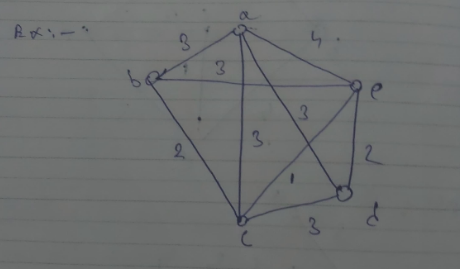 Ex:-
a
3
4
b
3
e
3
2
3
1
2
d
c
3